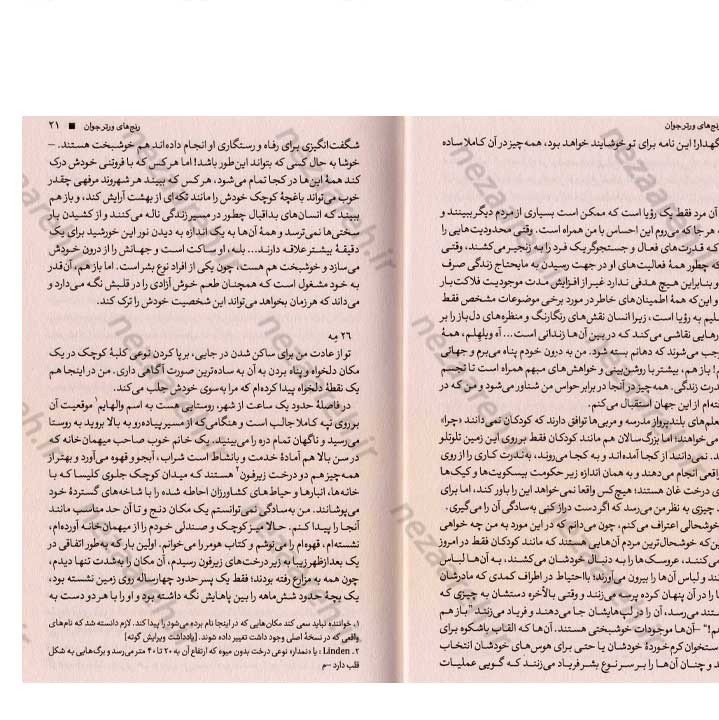 رنج‌های ورتر جوان
گهدار! این نامه برای تو خوشایند خواهد بود، همه‌چیز در آن کاملا ساده
آن مرد فقط یک رؤیا است که ممکن است بسیاری از مردم دیگر ببینند و
هر جا که می‌روم این احساس با من همراه است. وقتی محدودیت‌هایی را
که قدرت‌های فعال و جستجوگر یک فرد را به زنجیر می‌کشند، وقتی
که چطور همهٔ فعالیت‌های او در جهت رسیدن به مایحتاج زندگی صرف
و بنابراین هیچ هدفی ندارد غیر از افزایش مدت موجودیت فلاکت‌بار
و این‌که همهٔ اطمینان‌های خاطر در مورد برخی موضوعات مشخص فقط
لیم به رؤیا است، زیرا انسان نقش‌های رنگارنگ و منظره‌های دل‌باز را بر
رهایی نقاشی می‌کند که در بین آن‌ها زندانی است... آه ویلهلم، همهٔ
وجب می‌شوند که دهانم بسته شود. من به درون خودم پناه می‌برم و جهانی
! باز هم، بیشتر با روشن‌بینی و خواهش‌های مبهم همراه است تا تجسم
درت زندگی. همه‌چیز در آنجا در برابر حواس من شناور می‌شود و من که در
ته‌ام از این جهان استقبال می‌کنم.
علم‌های بلندپرواز مدرسه و مربی‌ها توافق دارند که کودکان نمی‌دانند «چرا»
می‌خواهند؛ اما بزرگسالان هم مانند کودکان فقط بر روی این زمین تلوتلو
د. نمی‌دانند از کجا آمده‌اند و به کجا می‌روند، به‌ندرت کاری را از روی
واقعی انجام می‌دهند و به همان اندازه زیر حکومت بیسکویت‌ها و کیک‌ها
ی درخت غان هستند؛ هیچ‌کس واقعا نمی‌خواهد این را باور کند، اما برای
د چیزی به نظر من می‌رسد که اگر دست دراز کنی به‌سادگی آن را می‌گیری.
خوشحالی اعتراف می‌کنم، چون می‌دانم که در این مورد به من چه خواهی
ین که خوشحال‌ترین مردم آن‌هایی هستند که مانند کودکان فقط در امروز
می‌کنند، عروسک‌ها را به دنبال خودشان می‌کشند، به آن‌ها لباس
ند و لباس آن‌ها را بیرون می‌آورند؛ بااحتیاط در اطراف کمدی که مادرشان
ا را در آن پنهان کرده پرسه می‌زنند و وقتی بالأخره دستشان به چیزی که
ستند می‌رسد، آن را در لپ‌هایشان جا می‌دهند و فریاد می‌زنند "باز هم
هم!" –آن‌ها موجودات خوشبختی هستند. آن‌ها که القاب باشکوه برای
ستخوان کرم‌خوردهٔ خودشان یا حتی برای هوس‌های خودشان انتخاب
د و چنان آن‌ها را بر سر نوع بشر فریاد می‌زنند که گویی عملیات
رنج‌های ورتر جوان ■ ۲۱
شگفت‌انگیزی برای رفاه و رستگاری او انجام داده‌اند هم خوشبخت هستند. –
خوشا به حال کسی که بتواند این‌طور باشد! اما هر کس که با فروتنی خودش درک
کند همهٔ این‌ها در کجا تمام می‌شود، هر کس که ببیند هر شهروند مرفهی چقدر
خوب می‌تواند باغچهٔ کوچک خودش را مانند تکه‌ای از بهشت آرایش کند، و باز هم
ببیند که انسان‌های بداقبال چطور در مسیر زندگی ناله می‌کنند و از کشیدن بار
سختی‌ها نمی‌ترسد و همهٔ آن‌ها به یک اندازه به دیدن نور این خورشید برای یک
دقیقهٔ بیشتر علاقه دارند... بله، او ساکت است و جهانش را از درون خودش
می‌سازد و خوشبخت هم هست، چون یکی از افراد نوع بشر است. اما باز هم، آن‌قدر
به خود مشغول است که همچنان طعم خوش آزادی را در قلبش نگه می‌دارد و
می‌داند که هر زمان بخواهد می‌تواند این شخصیت خودش را ترک کند.
۲۶ مِه
تو از عادت من برای ساکن شدن در جایی، برپا کردن نوعی کلبهٔ کوچک در یک
مکان دلخواه و پناه بردن به آن به ساده‌ترین صورت آگاهی داری. من در اینجا هم
یک نقطهٔ دلخواه پیدا کرده‌ام که مرا به‌سوی خودش جلب می‌کند.
در فاصلهٔ حدود یک ساعت از شهر، روستایی هست به اسم والهایم¹ موقعیت آن
بر روی تپه کاملا جالب است و هنگامی‌که از مسیر پیاده‌رو به بالا بروید به روستا
می‌رسید و ناگهان تمام دره را می‌بینید. یک خانم خوب صاحب میهمان‌خانه که
در سن بالا هم آمادهٔ خدمت و بانشاط است شراب، آبجو و قهوه می‌آورد و بهتر از
همه‌چیز هم دو درخت زیرفون² هستند که میدان کوچک جلوی کلیسا که با
خانه‌ها، انبارها و حیاط‌های کشاورزان احاطه شده را با شاخه‌های گستردهٔ خود
می‌پوشانند. من به‌سادگی نمی‌توانستم یک مکان دنج و تا آن حد مناسب مانند
آنجا را پیدا کنم. حالا میز کوچک و صندلی خودم را از میهمان‌خانه آورده‌ام،
نشسته‌ام، قهوه‌ام را می‌نوشم و کتاب هومر را می‌خوانم. اولین بار که به‌طور اتفاقی در
یک بعدازظهر زیبا به زیر درخت‌های زیرفون رسیدم، آن مکان را به‌شدت تنها دیدم،
چون همه به مزارع رفته بودند؛ فقط یک پسر حدود چهارساله روی زمین نشسته بود،
یک بچهٔ حدود شش‌ماهه را بین پاهایش نگه داشته بود و او را با هر دو دست به
۱. خواننده نباید سعی کند مکان‌هایی که در اینجا نام برده می‌شود را پیدا کند. لازم دانسته شد که نام‌های
واقعی که در نسخهٔ اصلی وجود داشت تغییر داده شوند. [یادداشت ویرایش گوته]
۲. Linden : یا «نمدار» نوعی درخت بدون میوه که ارتفاع آن به ۲۰ تا ۴۰ متر می‌رسد و برگ‌هایی به شکل
قلب دارد –م